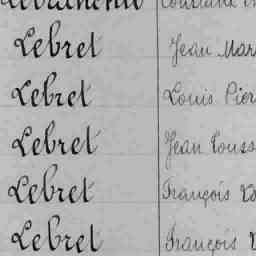 Lebret Jean Mar
Lebret Louis Pier
Lebret Jean Louis
Lebret François
Lebret François